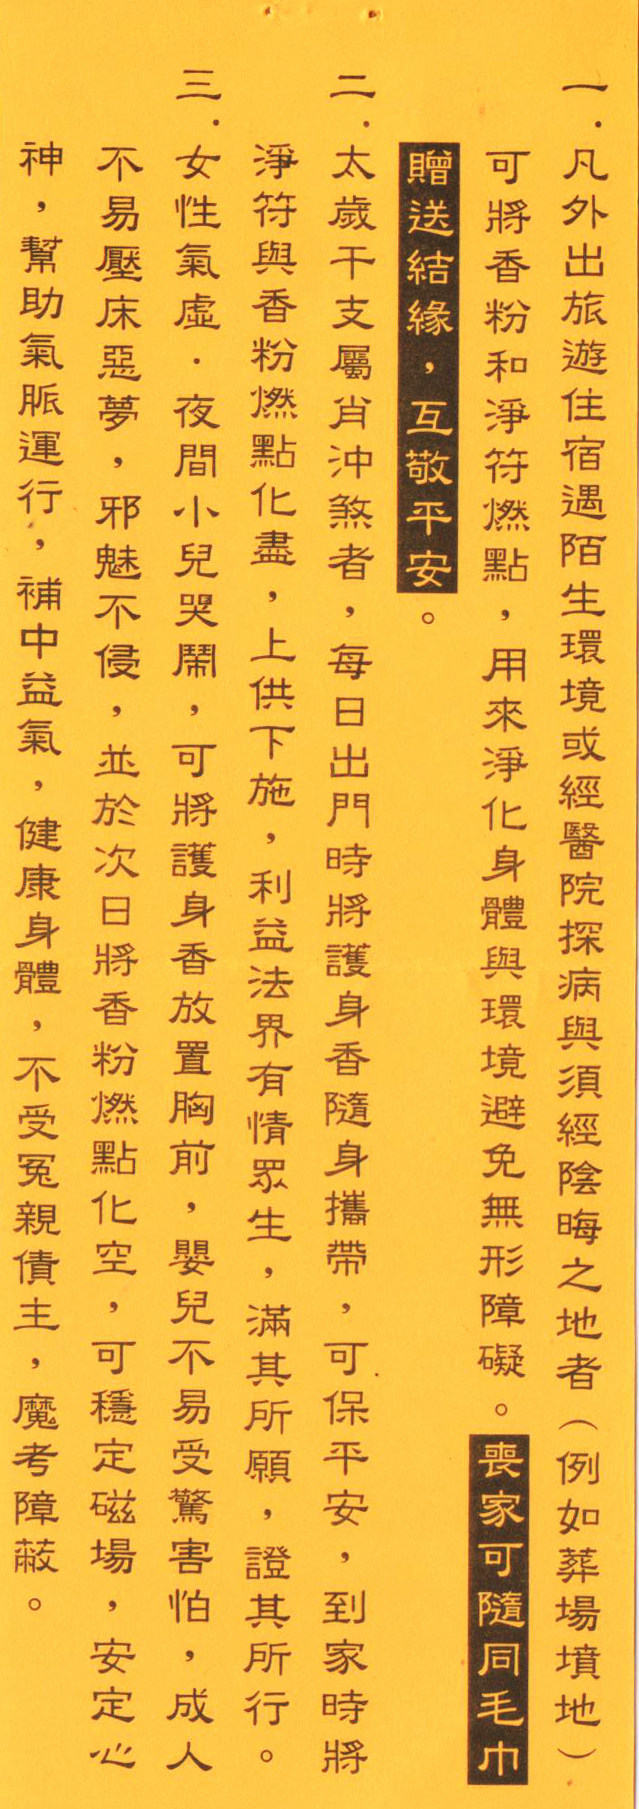 一．凡外出旅遊住宿遇陌生環境或經醫院探病與須經陰晦之地者（例如葬場墳地）
可將香粉和淨符燃點，用來淨化身體與環境避免無形障礙。喪家可隨同毛巾
贈送結緣，互敬平安。
二．太歲干支屬肖沖煞者，每日出門時將護身香隨身攜帶，可保平安，到家時將
淨符與香粉燃點化盡，上供下施，利益法界有情眾生，滿其所願，證其所行。
三．女性氣虛．夜間小兒哭鬧，可將護身香放置胸前，嬰兒不易受驚害怕，成人
不易壓床惡夢，邪魅不侵，並於次日將香粉燃點化空，可穩定磁場，安定心
神，幫助氣脈運行，補中益氣，健康身體，不受冤親債主，魔考障蔽。